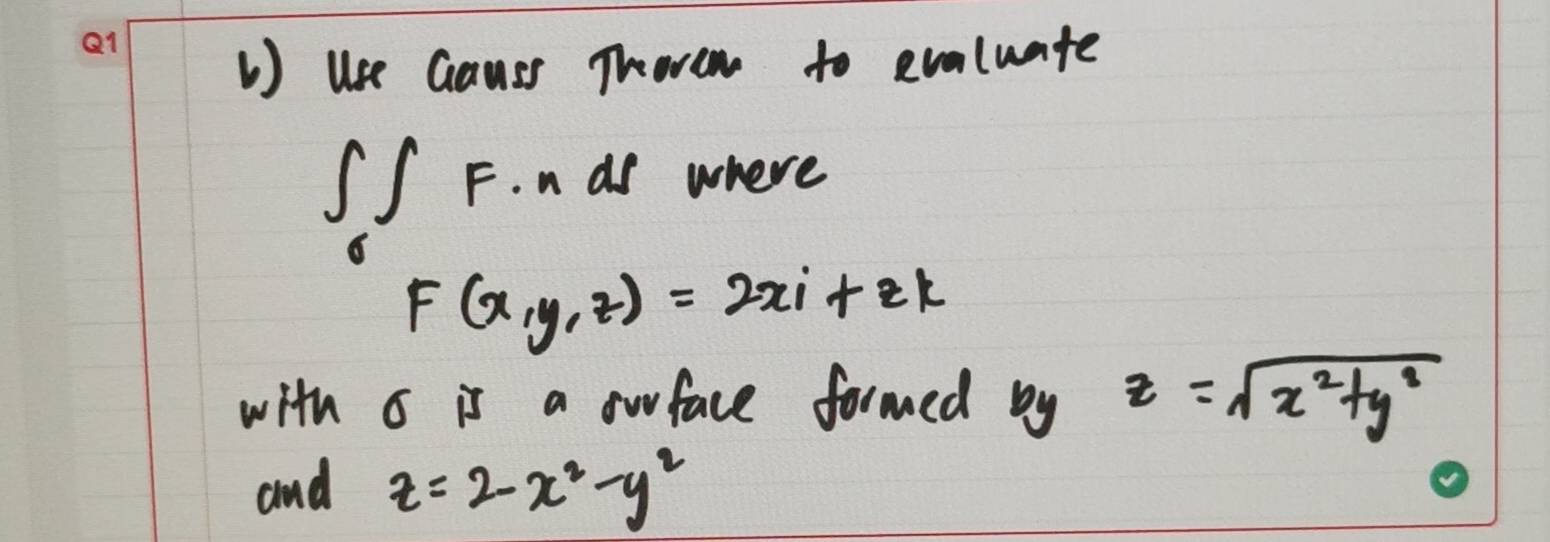 Q1
b) Use Gauss Theorem to evaluate
∫∫ F.n ds where
σ
F(x,y,z) = 2xi + zk
with σ is a surface formed by z = √x²+y²
and z = 2-x²-y²